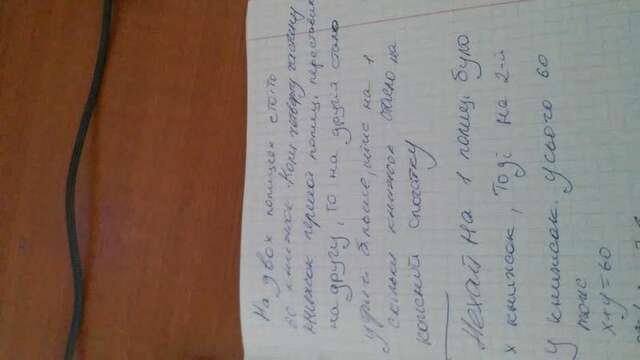 На двох полицях стоїть
60 книжок. Коли четверту частину
книжок першої полиці переставили
на другу, то на другій стало
у двічі більше, ніж на 1
скільки книжок стояло на
кожній спочатку
Нехай на 1 полиці було
х книжок, Тоді на 2-й
у книжок. усього 60
тоді
х+у=60